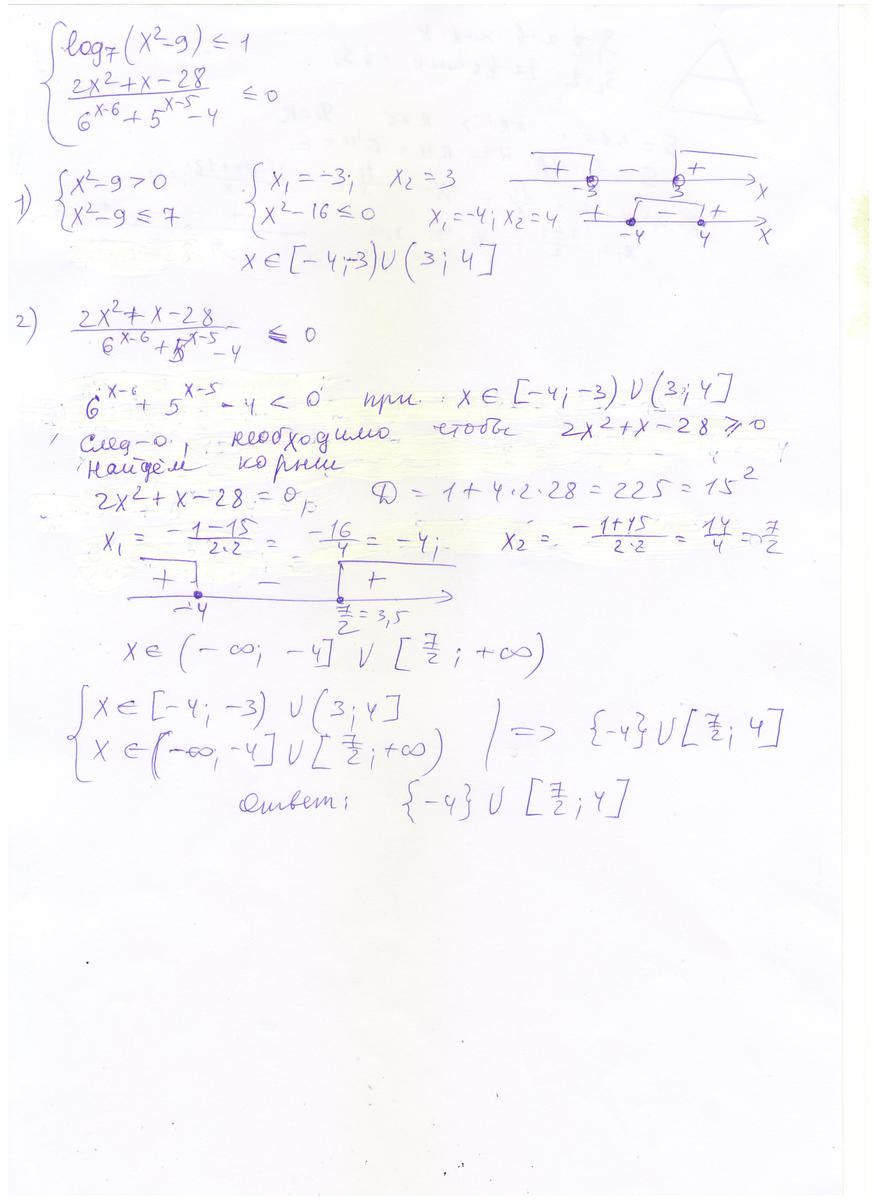 log₇(x²-9) ≤ 1
(2x²+x-28)/(6^(x-6)+5^(x-5)-4) ≤ 0
1) { x²-9>0 { x₁=-3; x₂=3 + - + -3 3 x
x²-9≤7 x²-16≤0 x₁=-4; x₂=4 + - + -4 4 x
x∈[-4;-3)∪(3;4]
2) (2x²+x-28)/(6^(x-6)+5^(x-5)-4) ≤ 0
6^(x-6)+5^(x-5)-4<0 при x∈[-4;-3)∪(3;4]
след-о, необходимо чтобы 2x²+x-28≥0
найдём корни
2x²+x-28=0, D=1+4·2·28=225=15²
x₁=(-1-15)/(2·2)=-16/4=-4; x₂=(-1+15)/(2·2)=14/4=7/2
+ - +
-4 7/2=3,5
x∈(-∞;-4]∪[7/2;+∞)
{ x∈[-4;-3)∪(3;4]
x∈(-∞;-4]∪[7/2;+∞) | => {-4}∪[7/2;4]
Ответ: {-4}∪[7/2;4]